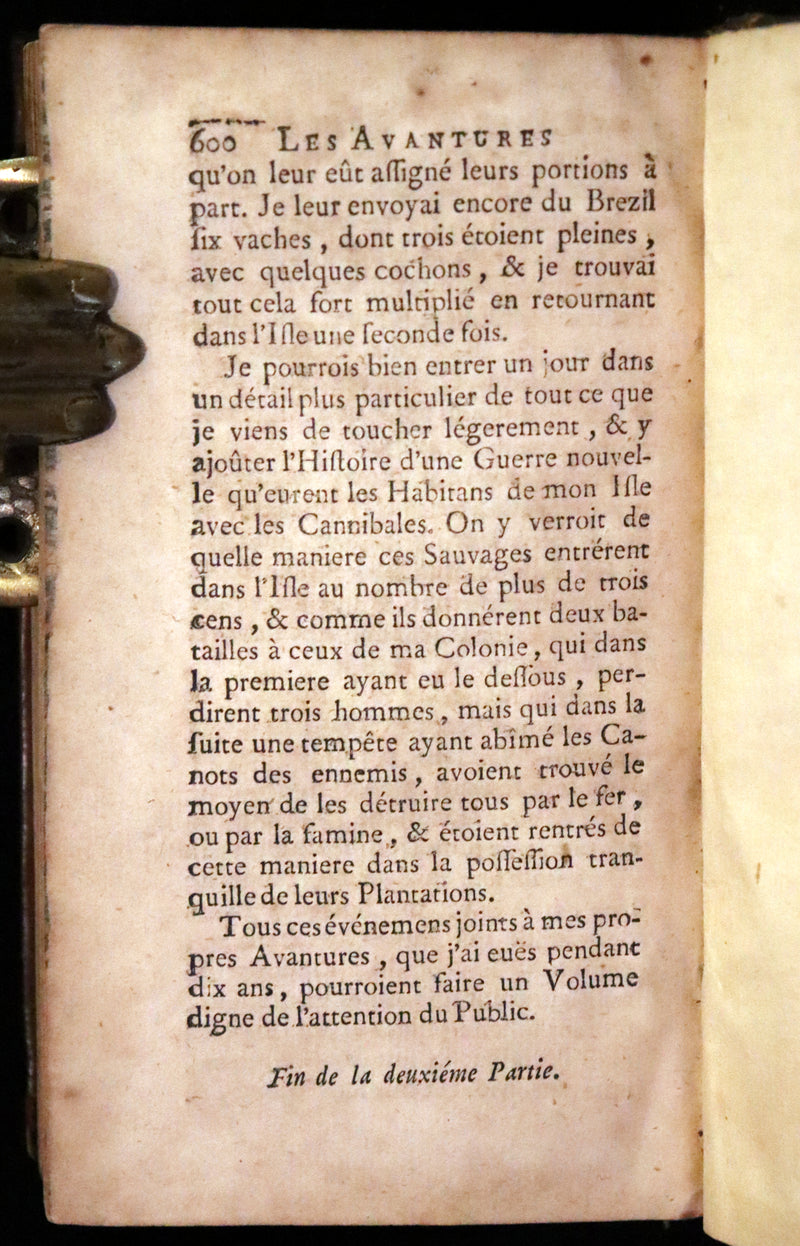 600 LES AVANTURES
qu'on leur eût aſſigné leurs portions à
part. Je leur envoyai encore du Brezil
ſix vaches, dont trois étoient pleines,
avec quelques cochons, & je trouvai
tout cela fort multiplié en retournant
dans l'Iſle une ſeconde fois.
Je pourrois bien entrer un jour dans
un détail plus particulier de tout ce que
je viens de toucher légerement, & y
ajoûter l'Hiſtoire d'une Guerre nouvel-
le qu'eurent les Habitans de mon Iſle
avec les Cannibales. On y verroit de
quelle maniere ces Sauvages entrérent
dans l'Iſle au nombre de plus de trois
cens, & comme ils donnérent deux ba-
tailles à ceux de ma Colonie, qui dans
la premiere ayant eu le deſſous, per-
dirent trois hommes, mais qui dans la
ſuite une tempête ayant abîmé les Ca-
nots des ennemis, avoient trouvé le
moyen de les détruire tous par le fer,
ou par la famine, & étoient rentrés de
cette maniere dans la poſſeſſion tran-
quille de leurs Plantations.
Tous ces événemens joints à mes pro-
pres Avantures, que j'ai euës pendant
dix ans, pourroient faire un Volume
digne de l'attention du Public.
Fin de la deuxiéme Partie.